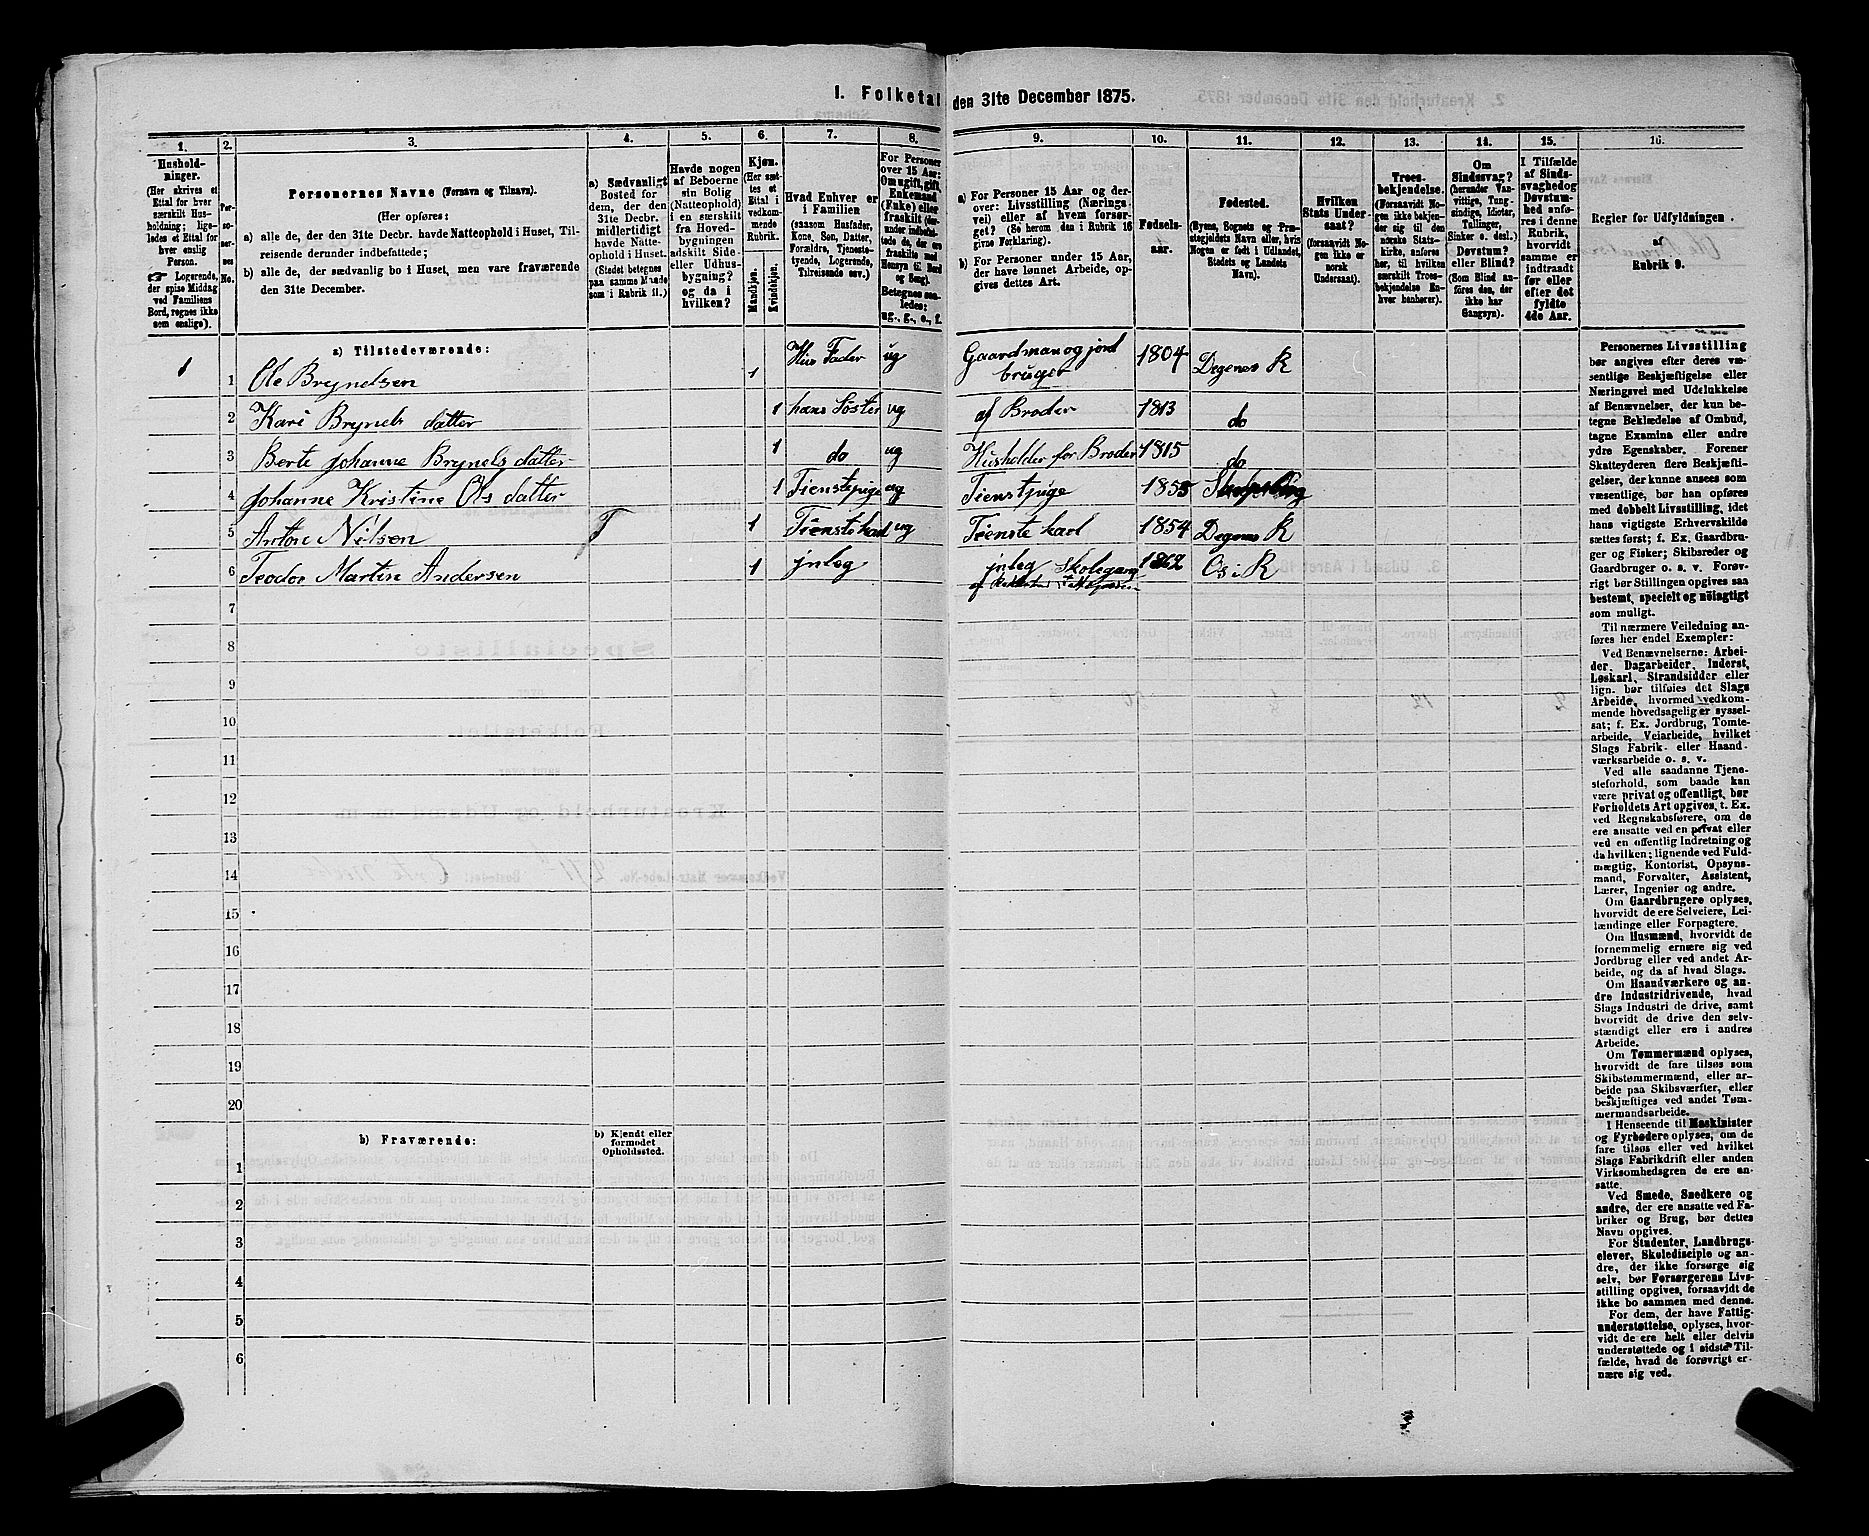 1. Folketal den 31te December 1875.
1.
Hushold-
ninger.
(Her skrives et
Ettal for hver
særskilt Hus-
holdning; lige-
ledes et Ettal for
hver enslig
Person.
☞ Logerende,
der spise Middag
ved Familiens
Bord, regnes ikke
som enslige).
2.
Per-
so-
ner-
nes
No.
3.
Personernes Navne (Fornavn og Tilnavn).
(Her opføres:
a) alle de, der den 31te Decbr. havde Natteophold i Huset, Til-
reisende derunder indbefattede;
b) alle de, der sædvanlig bo i Huset, men vare fraværende
den 31te December.
4.
a) Sædvanligt
Bosted for
dem, der den
31te Decbr.
midlertidigt
havde Natte-
ophold i Huset.
(Stedet betegnes
paa samme Maade
som i Rubrik 11.)
5.
Havde nogen
af Beboerne
sin Bolig
(Natteophold)
i en særskilt
fra Hoved-
bygningen
adskilt Side-
eller Udhus-
bygning?
og da i
hvilken?
6.
Kjøn.
(Her sæt-
tes et
Ettal i
vedkom-
mende
Rubrik.
Mandkjøn.
Kvindekjøn.
7.
Hvad Enhver er
i Familien
(saasom Husfader,
Kone, Søn, Datter,
Forældre, Tjeneste-
tyende, Logerende,
Tilreisende osv.)
8.
For Personer
over 15 Aar:
Om ugift, gift,
Enkemand
(Enke) eller
fraskilt (der-
under indbefat-
tede de, der ere
fraskilte med
Hensyn til Bord
og Seng).
Betegnes saa-
ledes:
ug., g., e., f.
9.
a) For Personer 15 Aar og der-
over: Livsstilling (Nærings-
vei) eller af hvem forsør-
get? (Se herom den i Rubrik 16
givne Forklaring).
b) For Personer under 15 Aar,
der have lønnet Arbeide, op-
gives dettes Art.
10.
Fødsels-
aar.
11.
Fødested.
(Byens, Sognets og Præ-
stegjeldets Navn eller, hvis
Nogen er født i Udlandet,
Stedets og Landets
Navn).
12.
Hvilken
Stats Under-
saat?
(forsaavidt No-
gen ikke er
norsk
Undersaat).
13.
Troes-
bekjendelse.
(Forsaavidt No-
gen ikke bekjen-
der sig til den
norske Stats-
kirke, anføres
her, til hvilken
særskilt Troes-
bekjendelse En-
hver henhører).
14.
Om
Sindssvag?
(herunder Van-
vittige, Tung-
sindige, Idioter,
Tullinger,
Sinker o. desl.)
Døvstum?
eller Blind?
(Som Blind an-
føres den, der
ikke har
Gangsyn).
15.
I Tilfælde
af Sinds-
svaghed og
Døvstum-
hed anfø-
res i denne
Rubrik,
hvorvidt
samme er
indtraadt
før eller
efter det
fyldte
4de Aar.
16.
Regler for Udfyldningen
af
Rubrik 9.
a) Tilstedeværende:
1 1 Ole Brynelsen 1 Hus Fader ug Gaardman og jord
bruger 1804 Degenes K
2 Kari Brynels datter 1 hans Søster ug af Broder 1813 do
3 Berte Johanne Brynels datter 1 do ug Husholder for Broder 1815 do
4 Johanne Kristine Ols datter 1 Tienstepige ug Tienstpige 1855
5 Anton Nilsen T 1 Tienste karl ug Tienste karl 1854 Degenes K
6 Teodor Martin Andersen 1 inleg inleg Skolegang 1862 Os i R
7
8
9
10
11
12
13
14
15
16
17
18
19
20
b) Fraværende:
b) Kjendt eller
formodet
Opholdssted.
1
2
3
4
5
6
Personernes Livsstilling
bør angives efter deres væ-
sentlige Beskjæftigelse eller
Næringsvei med Udelukkelse
af Benævnelser, der kun be-
tegne Beklædelse af Ombud,
tagne Examina eller andre
ydre Egenskaber. Forener
Skatteyderen flere Beskjæfti-
gelser, der kunne ansees som
væsentlige, bør han opføres
med dobbelt Livsstilling, idet
hans vigtigste Erhvervskilde
sættes først; f. Ex. Gaardbru-
ger og Fisker; Skibsreder og
Gaardbruger o. s. v. Forøv-
rigt bør Stillingen opgives saa
bestemt, specielt og nøiagtigt
som muligt.
Til nærmere Veiledning an-
føres her endel Exempler:
Ved Benævnelserne: Arbei-
der, Dagarbeider, Inderst,
Løskarl, Strandsidder eller
lign. bør tilføies det Slags
Arbeide, hvormed vedkom-
mende hovedsagelig er syssel-
sat; f. Ex. Jordbrug, Tomte-
arbeide, Veiarbeide, hvilket
Slags Fabrik- eller Haand-
værksarbeide o. s. v.
Ved alle saadanne Tjene-
steforhold, som baade kan
være privat og offentligt, bør
Forholdets Art opgives, t. Ex.
ved Regnskabsførere, om de
ere ansatte ved en privat eller
ved en offentlig Indretning og
da hvilken; lignende ved Fuld-
mægtig, Kontorist, Opsyns-
mand, Forvalter, Assistent,
Lærer, Ingeniør og andre.
Om Gaardbrugere oplyses,
hvorvidt de ere Selveiere, Lei-
lændinge eller Forpagtere.
Om Husmænd, hvorvidt de
fornemmelig ernære sig ved
Jordbrug eller ved andet Ar-
beide, og da af hvad Slags.
Om Haandværkere og an-
dre Industridrivende, hvad
Slags Industri de drive, samt
hvorvidt de drive den selv-
stændigt eller ere i andres
Arbeide.
Om Tømmermænd oplyses,
hvorvidt de fare tilsøs som
Skibstømmermænd, eller ar-
beide paa Skibsværfter, eller
beskjæftiges ved andet Tøm-
mermandsarbeide.
I Henseende til Maskinister
og Fyrbødere oplyses, om de
fare tilsøs eller ved hvilket
Slags Fabrikdrift eller anden
Virksomhedsgren de ere an-
satte.
Ved Smede, Snedkere og
andre, der ere ansatte ved Fa-
briker og Brug, bør dettes
Navn opgives.
For Studenter, Landbrugs-
elever, Skoledisciple og an-
dre, der ikke forsørge sig
selv, bør Forsørgerens Livs-
stilling opgives, forsaavidt de
ikke bo sammen med denne.
For dem, der have Fattig-
understøttelse, oplyses, hvor-
vidt de ere helt eller delvis
understøttede og i sidste Til-
fælde, hvad de forøvrigt er-
nære sig ved.